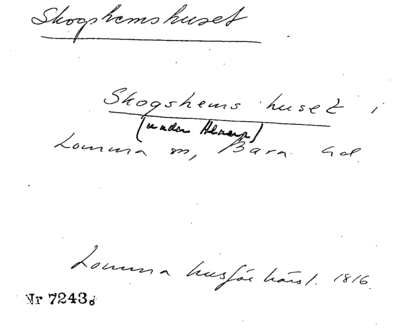 Skogshemshuset
Skogshems huset i
(under Alnarp)
Lomma sn, Bara hd.
Lomma husförhörsl. 1816.
Nr 7243.